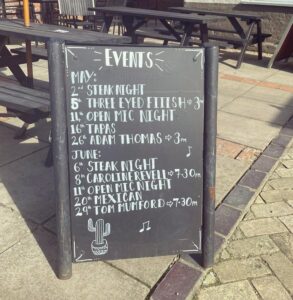 EVENTS
MAY:
2nd STEAK NIGHT
5th THREE EYED FIIISH → 3pm
11th OPEN MIC NIGHT
16th TAPAS
26th ADAM THOMAS → 3pm
JUNE:
6th STEAK NIGHT
8th CAROLINE REVELL → 7-30pm
11th OPEN MIC NIGHT
20th MEXICAN
29th TOM MUMFORD → 7-30pm